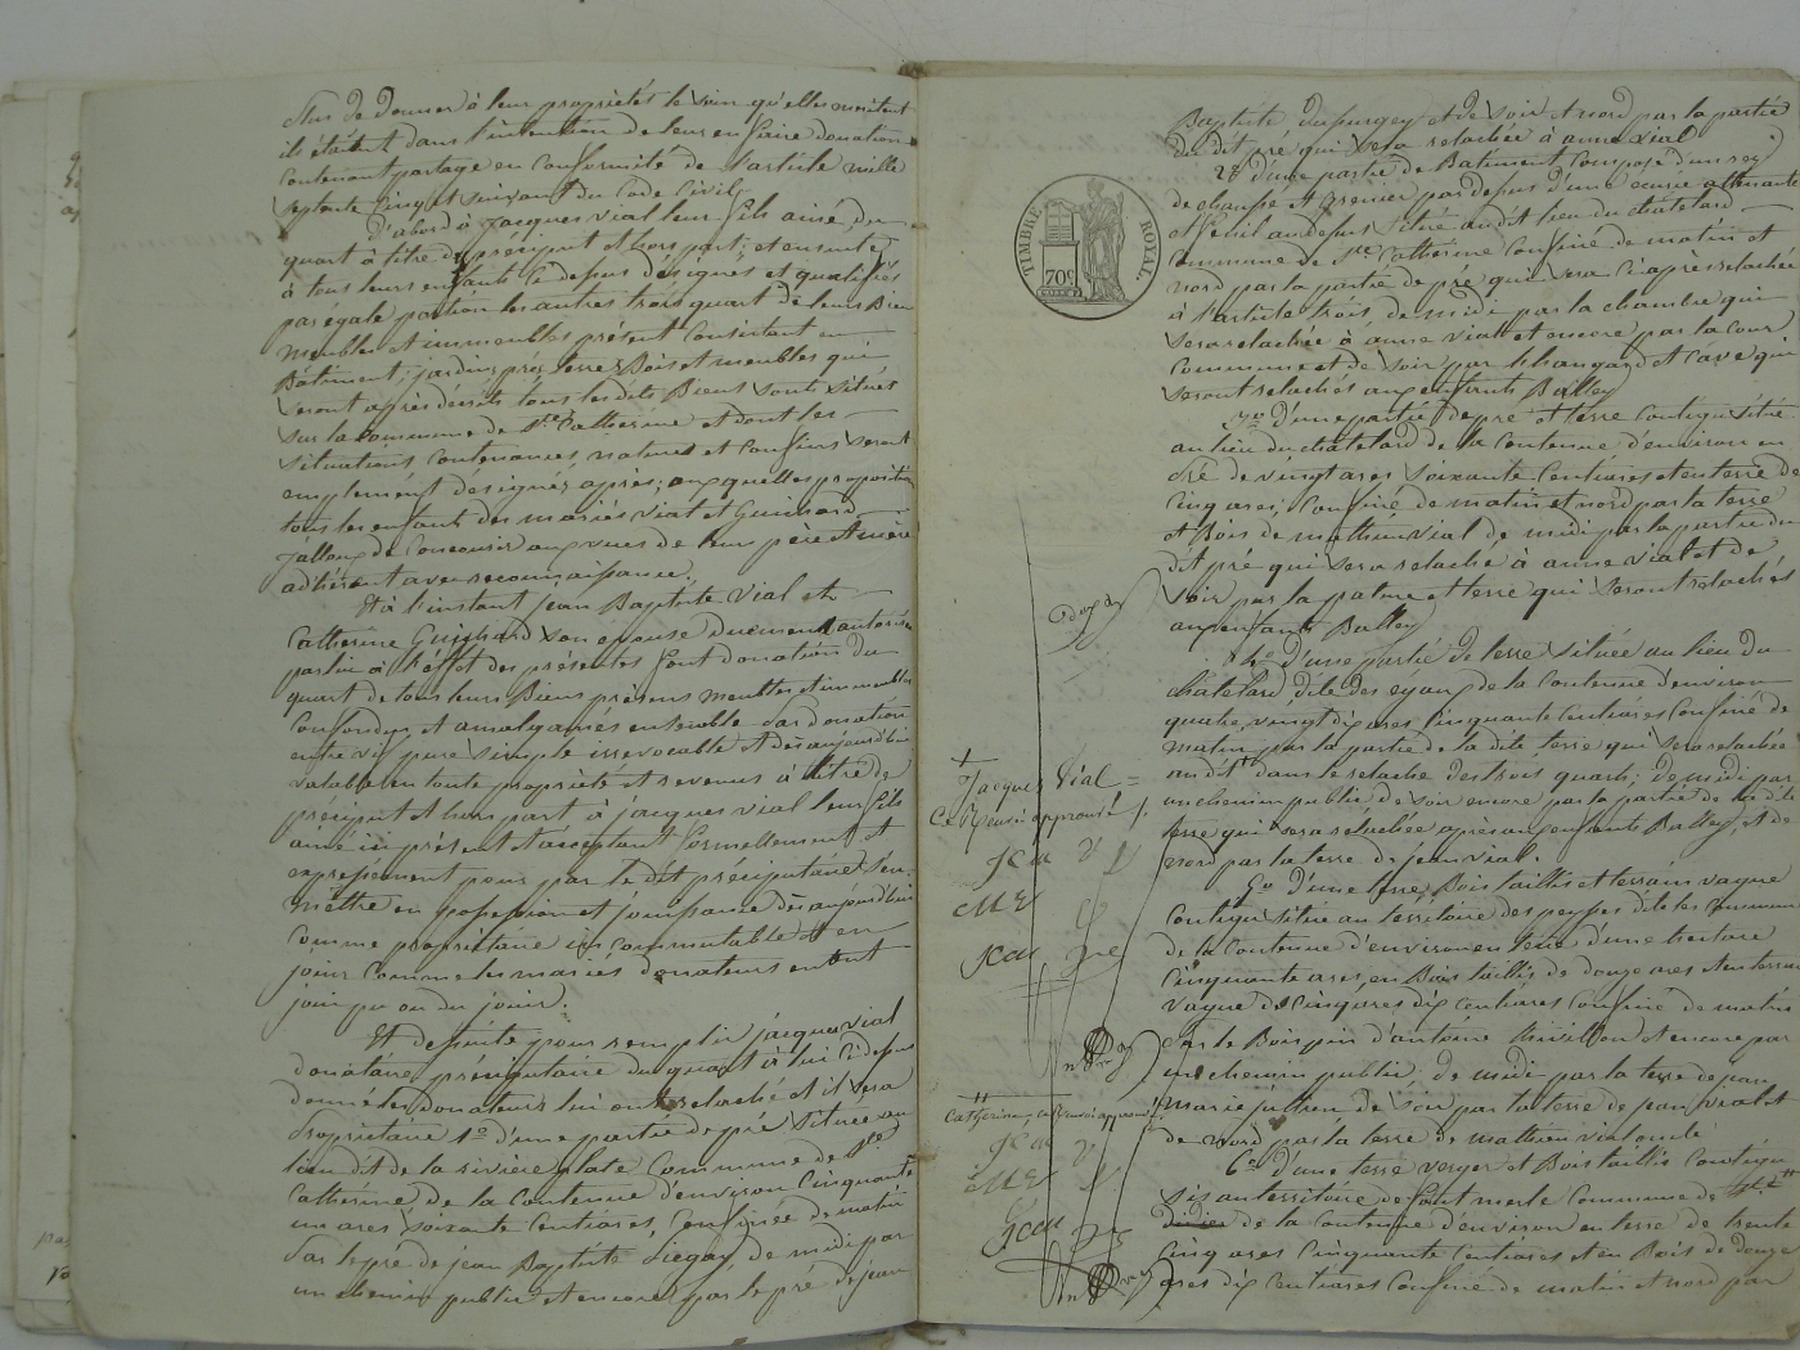 plus de donner à leur propriétés le soin qu'elles méritent
ils étaient dans l'intention de leur en faire donation
contenant partage en conformité de l'article mille
septente cinq et suivant du Code Civil
d'abord à Jacques Vial leur fils ainé, du
quart à titre de préciput et hors part; et ensuite
à tous leurs enfants ci dessus désignés et qualifiés
par égale portion les autres trois quart de leurs Bien
meubles et immeubles présent Consistant en
Bâtiment, jardins, prés, terres, Bois et meubles qui
seront après décrits tous les dits Biens sont situés
sur la Commune de Ste Catherine et dont les
situations, contenances, natures et confins seront
emplement désignés après; auxquelles proposition
tous les enfants des mariés Vial et Guinard
jalloux de concourir aux vues de leur père et mère
adhérent avec reconnaissance.
Et à l'instant Jean Baptiste Vial et
Catherine Guinard son épouse duement autorisée
par lui à l'effet des présentes font donation du
quart de tous leurs Biens présens meubles et immeubles
confondus et amalgamés ensemble par donation
entre vif pure simple irrevocable et dès aujourd'hui
valable en toute propriété et revenus à titre de
préciput et hors part à jacques vial leur fils
ainé ici présent et acceptant formellement et
expressément pour par le dit préciputaire s'en
mettre en possession et jouissance dès aujourd'hui
comme propriétaire incommutable et en
jouir comme les mariés donateurs en ont
joui pu ou du jouir.
Et de suite pour remplir jacques vial
donataire préciputaire du quart à lui ci dessus
donné les donateurs lui ont relaché et il sera
propriétaire 1o d'une partie de pré située au
lieu dit de la rivière plate Commune de Ste
Catherine de la contenue d'environ cinquante
un ares soixante centiares, confinée de matin
par le pré de jean Baptiste de midi par
un chemin public et encore par le pré de jean
Baptiste et de soir et nord par la partie
du dit pré qui sera relachée à anne vial
2o d'une partie de Batiment composé d'un rez
de chaussé et grenier pardessus d'une écurie attenante
et fenil au dessus situé au dit lieu du châtelard
Commune de Ste Catherine confiné de matin et
nord par la partie de pré qui sera ci après relachée
à l'article trois, de midi par la chambre qui
sera relachée à anne vial et encore par la cour
commune et de soir par l'hangard et cave qui
seront relachés aux enfants Balley
3o D'une partie de pré et terre contigu situé
au lieu du châtelard de la contenue d'environ en
pré de vingt ares soixante centiares et en terre de
cinq ares, confiné de matin et nord par la terre
et Bois de mathieu vial de midi par la partie du
dit pré qui sera relaché à anne vial et de
soir par la pature et terre qui seront relachés
aux enfants Balley
4o D'une partie de terre située au lieu du
châtelard, dite des de la contenue d'environ
quatre vingt dix ares cinquante centiares confiné de
matin par la partie de la dite terre qui sera relachée
au dit dans le relache des trois quart; de midi par
un chemin public de soir encore par la partie de la dite
terre qui sera relachée après aux enfants Balley, et de
nord par la terre de jean vial.
5o D'une terre Bois taillis et terrain vague
contigu situé au territoire des dite les
de la contenue d'environ en terre d'une hectare
cinquante ares, en Bois taillis de douze ares et en terrain
vague de cinq ares dix centiares confiné de matin
par le Bois pin d'antoine et encore par
un chemin public, de midi par la terre de jean
marie de soir par la terre de jean vial et
de nord par la terre de mathieu vial
6o d'une terre verger et Bois taillis contigu
sis au territoire de Commune de
didier de la contenue d'environ en terre de trente
cinq ares cinquante centiares et en Bois de douze
ares dix centiares confiné de matin et nord par
TIMBRE ROYAL.
70c
Jacques Vial
Ce Renvoi approuvé
JCM V
Catherine, ce renvoi approuvé